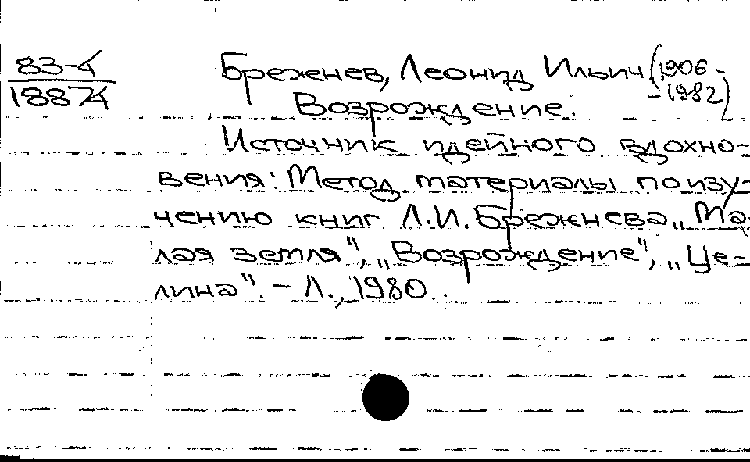 83-4
18874
Брежнев, Леонид Ильич (1906-
-1982)
Возрождение.
Источник идейного вдохно-
вения: Метод. материалы по изу-
чению книг Л.И. Брежнева „Ма-
лая земля", „Возрождение", „Це-
лина". – Л., 1980.